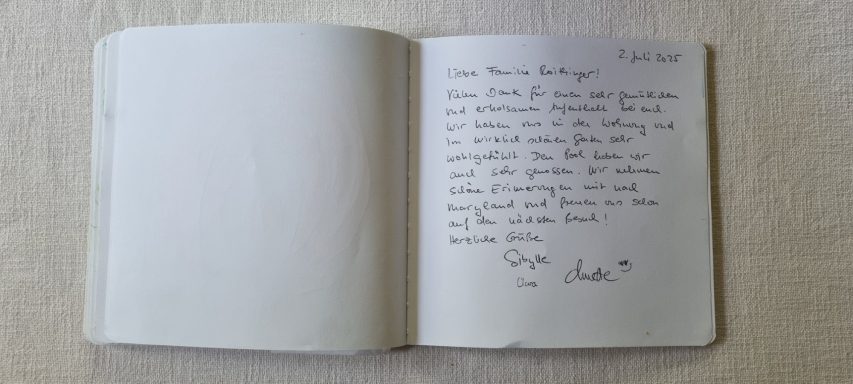 2. Juli 2025
Liebe Familie Roithinger!
Vielen Dank für einen sehr gemütlichen
und erholsamen Aufenthalt bei euch.
Wir haben uns in der Wohnung und
im wirklich schönen Garten sehr
wohlgefühlt. Den Pool haben wir
auch sehr genossen. Wir nehmen
schöne Erinnerungen mit nach
Maryland und freuen uns schon
auf den nächsten Besuch!
Herzliche Grüße
Sibylle